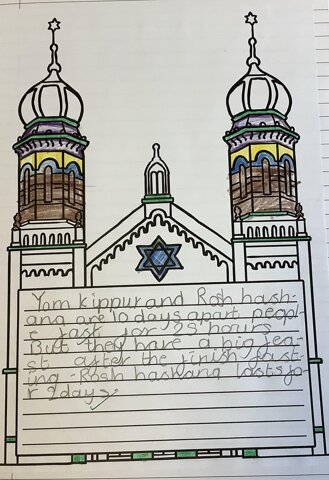 Yom kippur and Rosh hash-
ana are 10 days apart peopl-
e fast for 25 hours
But they have a big fea-
st after the finish fast-
ing. Rosh hashana lasts fo
r 2 days